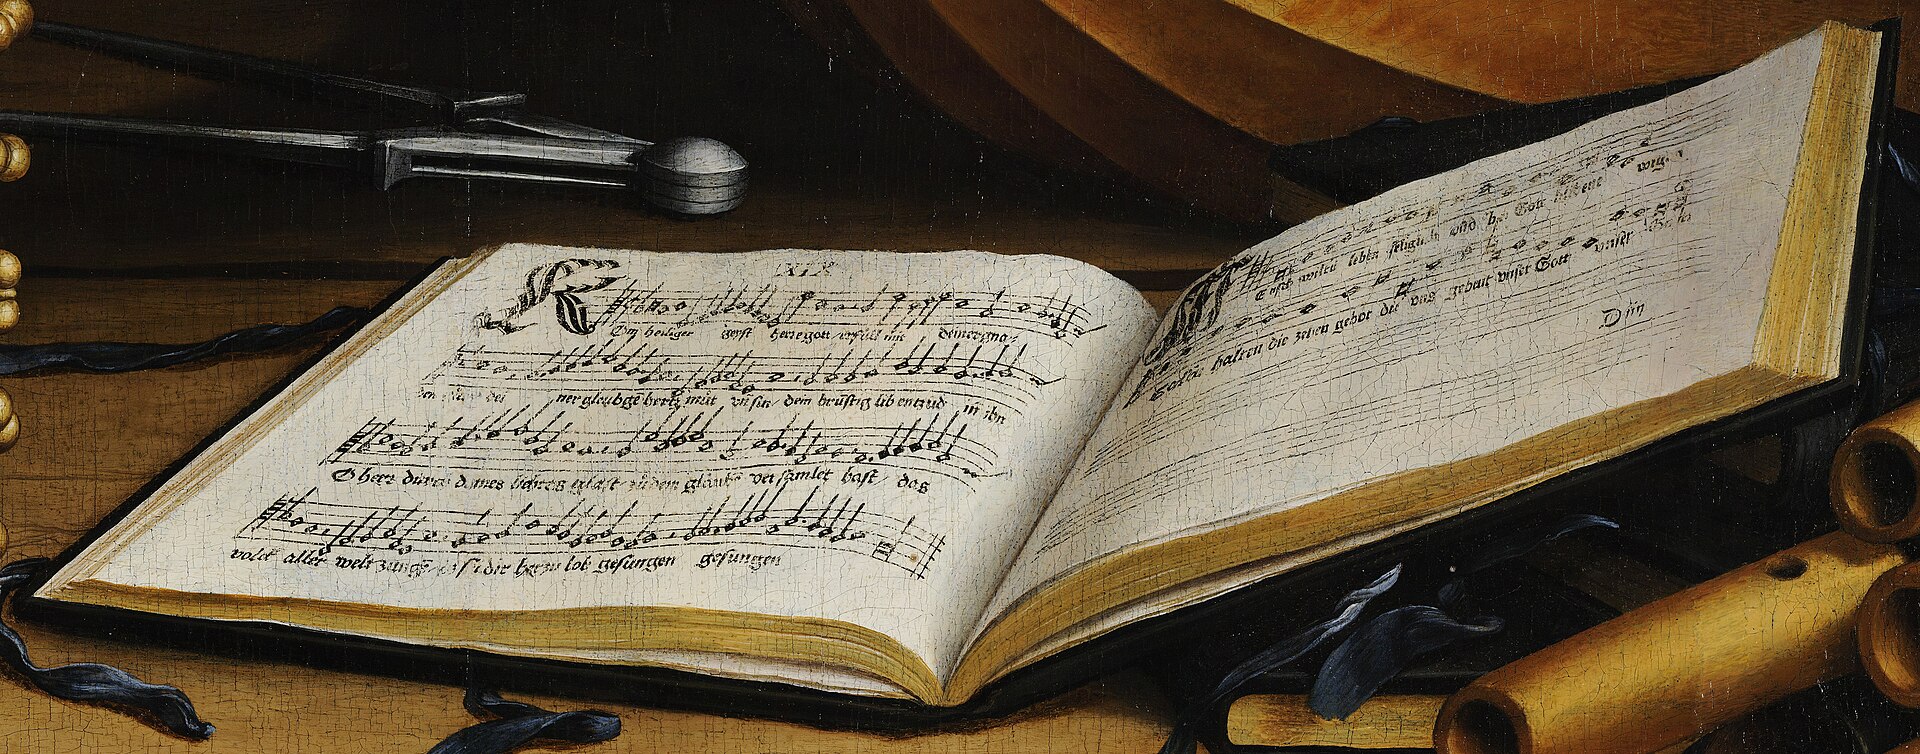 XIX
Kom heiliger geyst herregott erfüll mit deiner gna-
den dei ner gleubgē hertz mut vn̄ sin dein brüstig lib entzüd in ihn
O herr durch deines lichtes glast zu dem glaubē versamlet hast das
volck aller welt zungē das sei dir herr zu lob gesungen gesungen
Mensch wiltu leben seliglich vnd bei Gott blibene wig
Soltu halten die zehen gebot die vns gebeut vnser Gott vnser